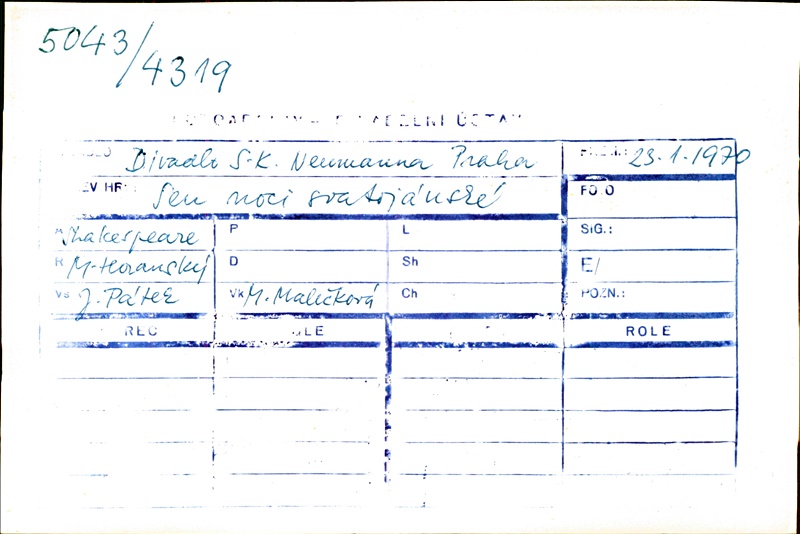 5043/4319
DIVADELNÍ ÚSTAV
Divadlo S.K. Neumanna Praha
23.1.1970
EV HR
Sen noci svatojánské
FOTO
Shakespeare P L SIG.:
R M. Horanský D Sh E/
Vs J. Pátek Vk M. Maličková Ch POZN.:
ROLE